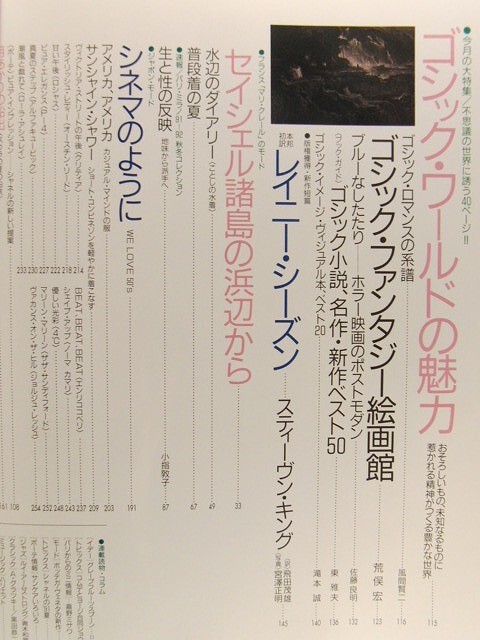 ●今月の大特集／不思議の世界に誘う40ページ!!
ゴシック・ワールドの魅力
おそろしいもの、未知なるものに
惹かれる精神がつくる豊かな世界
115
ゴシック・ロマンスの系譜
風間賢二 116
ゴシック・ファンタジー絵画館
荒俣 宏 123
ブルーなしたたり
ホラー映画のポストモダン
佐藤良明 132
〈ブック・ガイド〉ゴシック小説、名作・新作ベスト50
東 雅夫 136
ゴシック・イメージ・ヴィジュアル本、ベスト20
滝本 誠 140
●版権獲得・新作短篇
本邦初訳 レイニー・シーズン
スティーヴン・キング
〔訳〕飛田茂雄
〔写真〕宮澤正明
145
●フランス「マリ・クレール」のモード
セイシェル諸島の浜辺から 33
水辺のダイアリー〈ことしの水着〉 49
普段着の夏 67
●速報／パリ・ミラノ 91／92秋冬コレクション
生と性の反映 地味から派手へ
小指敦子 87
●ジャポン・モード
シネマのように WE LOVE 50's 191
アメリカ、アメリカ カジュアル・マインドの服 203
サンシャイン・シャワー ショート・コンビネゾンを軽やかに着こなす 209
ヴィクトリア・ストリートの午後 214
スタイリッシュ・レディ〈オースチン・リード〉 218
甘い午後 222
ピュア・エレガンス 227
真夏のステップ 230
潮風と戯れて〈ローラ・アシュレイ〉 233
シャネルの新しい提案
BEAT BEAT BEAT 237
シェイプ・アップ〈ノーマ カマリ〉 243
優しい光彩〈4℃〉 248
マリーン・マリーン〈ザ・サンディフォード〉 252
ヴァカンス・オン・ザ・ヒル〈ジョルジュ・レッシュ〉 254
108
161
●連載読物・コラム